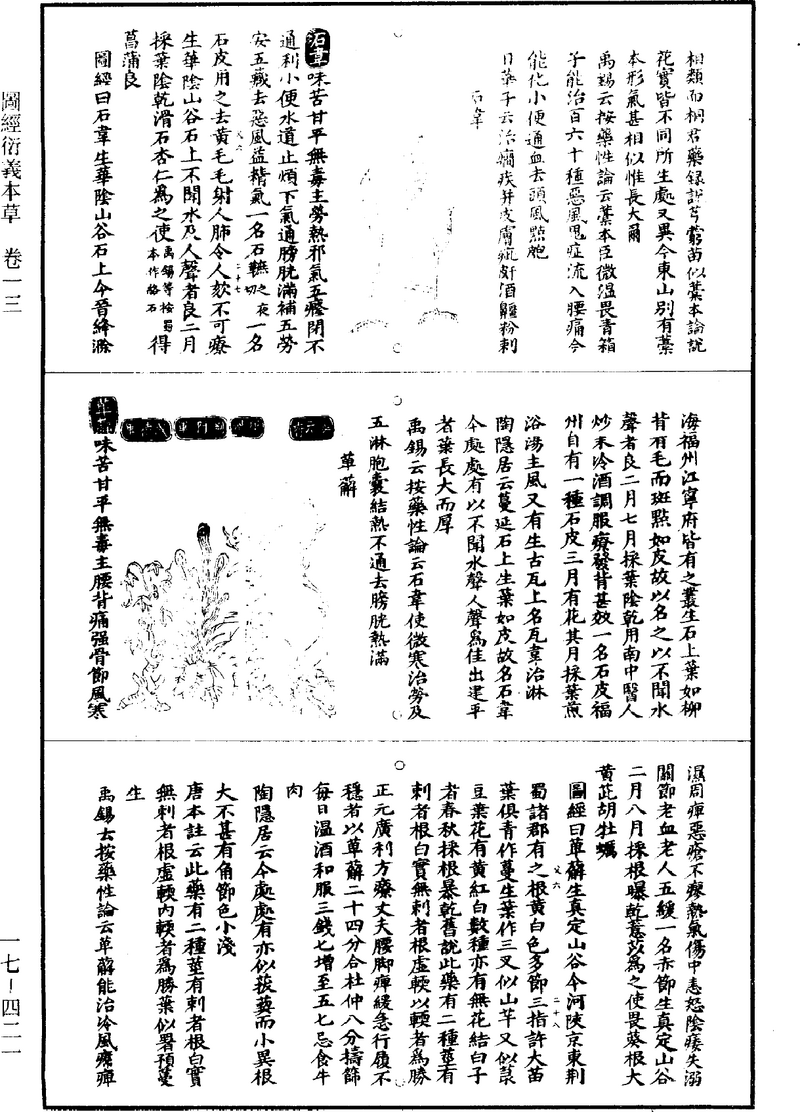 圖經衍義本草　卷一三
一七－四二一
相類而桐君藥錄說芎藭苗似藁本論說
花實皆不同所生處又異今東山別有藁
本形氣甚相似惟長大爾
禹錫云按藥性論云藁本臣微溫畏青箱
子能治百六十種惡風鬼疰流入腰痛冷
能化小便通血去頭風䵟皰
日華子云治癇疾并皮膚疵皯酒齇粉刺
石韋
石韋味苦甘平無毒主勞熱邪氣五癃閉不
通利小便水道止煩下氣通膀胱滿補五勞
安五藏去惡風益精氣一名石䩾之夜切一名
石皮用之去黃毛毛射人肺令人欬不可療
生華陰山谷石上不聞水及人聲者良二月
採葉陰乾滑石杏仁為之使禹錫等按蜀本作絡石得
菖蒲良
圖經曰石韋生華陰山谷石上今晉絳滁
海福州江寧府皆有之叢生石上葉如柳
背有毛而斑點如皮故以名之以不聞水
聲者良二月七月採葉陰乾用南中醫人
炒末冷酒調服療發背甚效一名石皮福
州自有一種石皮三月有花其月採葉煎
浴湯主風又有生古瓦上名瓦韋治淋
陶隱居云蔓延石上生葉如皮故名石韋
今處處有以不聞水聲人聲為佳出建平
者葉長大而厚
禹錫云按藥性論云石韋使微寒治勞及
五淋胞囊結熱不通去膀胱熱滿
萆薢
萆薢味苦甘平無毒主腰背痛强骨節風寒
濕周痺惡瘡不瘳熱氣傷中恚怒陰痿失溺
關節老血老人五緩一名赤節生真定山谷
二月八月採根曝乾薏苡為之使畏葵根大
黃茈胡牡蠣
圖經曰萆薢生真定山谷今河陝京東荆
蜀諸郡有之根黃白色多節三指許大苗
葉俱青作蔓生葉作三叉似山芋又似菉
豆葉花有黃紅白數種亦有無花結白子
者春秋採根暴乾舊說此藥有二種莖有
刺者根白實無刺者根虛軟以軟者為勝
正元廣利方療丈夫腰脚痺緩急行履不
穩者以萆薢二十四分合杜仲八分擣篩
每日溫酒和服三錢匕增至五匕忌食牛
肉
陶隱居云今處處有亦似菝葜而小異根
大不甚有角節色小淺
唐本註云此藥有二種莖有刺者根白實
無刺者根虛軟內軟者為勝葉似署預蔓
生
禹錫云按藥性論云萆薢能治冷風㿏痺